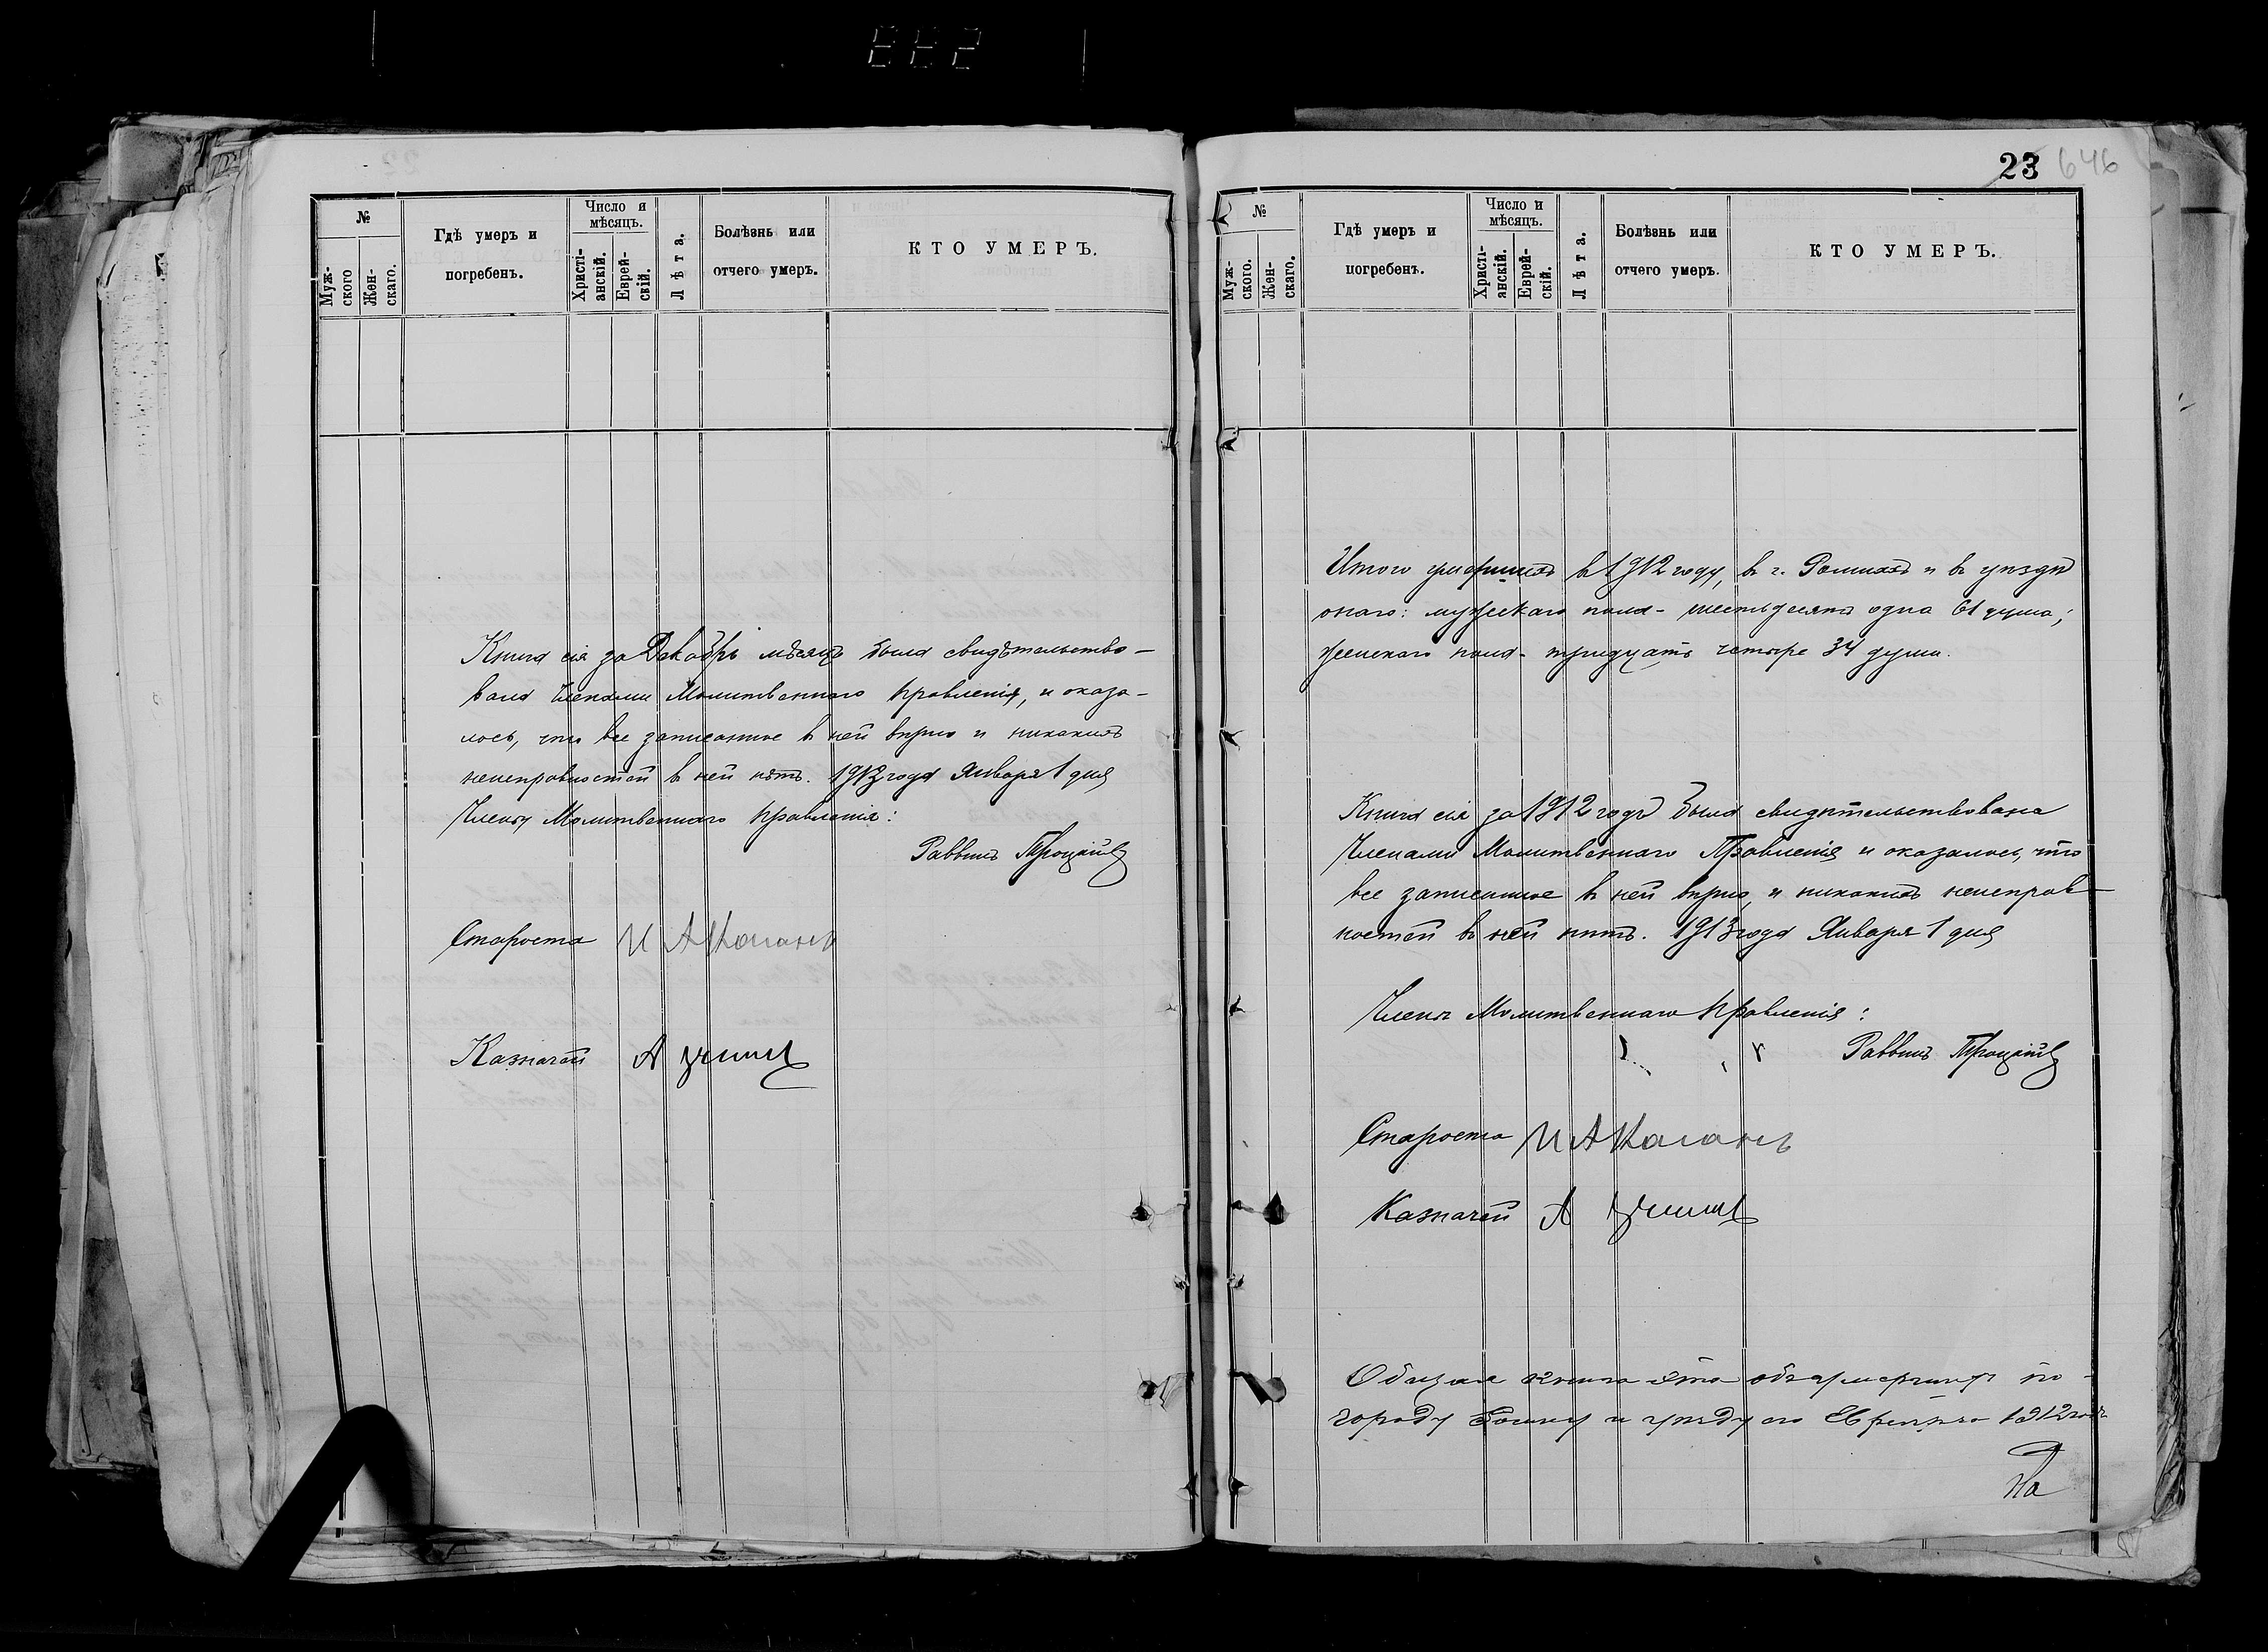 23 646
№
Муж-
ского
Жен-
скаго.
Гдѣ умеръ и
погребенъ.
Число и
мѣсяцъ.
Христі-
анскій.
Еврей-
скій.
Лѣта.
Болѣзнь или
отчего умеръ.
КТО УМЕРЪ.
Книга сія за Декабрь мѣсяцъ была свидѣтельство-
вана Членами Молитвеннаго Правленія, и оказа-
лось, что все записанное въ ней вѣрно и никакихъ
неисправностей въ ней нѣтъ. 1913 года Января 1 дня
Члены Молитвеннаго Правленія:
Раввинъ
Староста И А Коганъ
Казначей А
№
Муж-
ского.
Жен-
скаго.
Гдѣ умеръ и
погребенъ.
Число и
мѣсяцъ.
Христі-
анскій.
Еврей-
скій.
Лѣта.
Болѣзнь или
отчего умеръ.
КТО УМЕРЪ.
Итого умершихъ въ 1912 году, въ г. Ромнахъ и въ уѣздѣ
онаго: мужскаго пола - шестьдесятъ одна 61 душа;
женскаго пола - тридцать четыре 34 души.
Книга сія за 1912 годъ была свидѣтельствована
Членами Молитвеннаго Правленія и оказалось, что
все записанное въ ней вѣрно, и никакихъ неисправ-
ностей въ ней нѣтъ. 1913 года Января 1 дня
Члены Молитвеннаго Правленія:
Раввинъ
Староста И А Коганъ
Казначей А
книга эта объ умершихъ по
городу и уѣзду его 1912 годъ
На